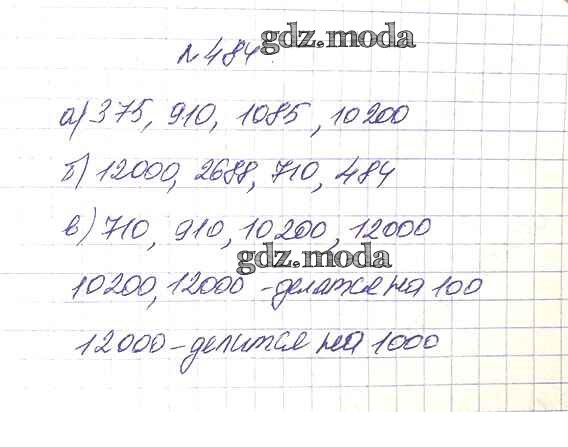 №484
gdz.moda
а) 375, 910, 1085, 10200
б) 12000, 2688, 710, 484
в) 710, 910, 10200, 12000
gdz.moda
10200, 12000 - делятся на 100
12000 - делится на 1000